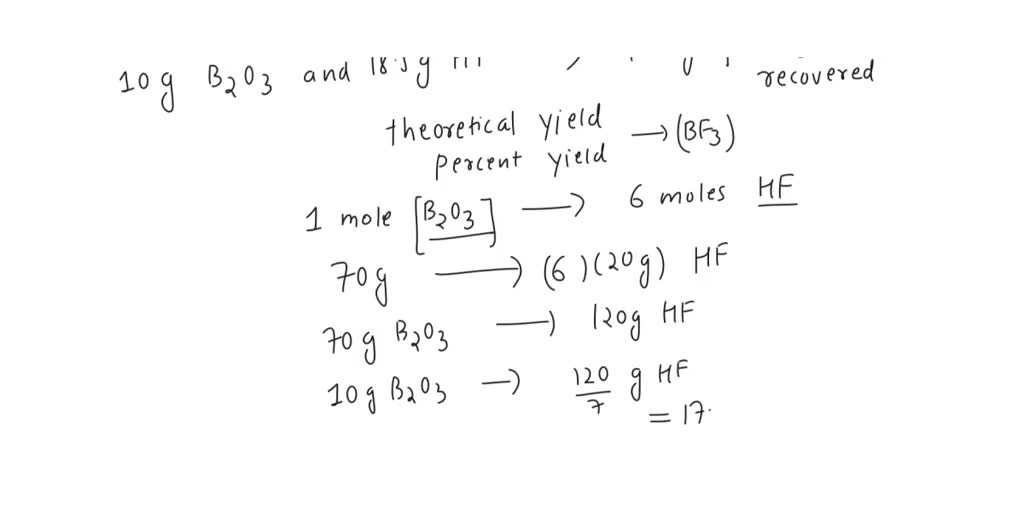 10g B2O3 and 18.5g recovered
theoretical yield → (BF3)
percent yield
1 mole [B2O3] → 6 moles HF
70g → (6)(20g) HF
70g B2O3 → 120g HF
10g B2O3 → 120/7 g HF
= 17.